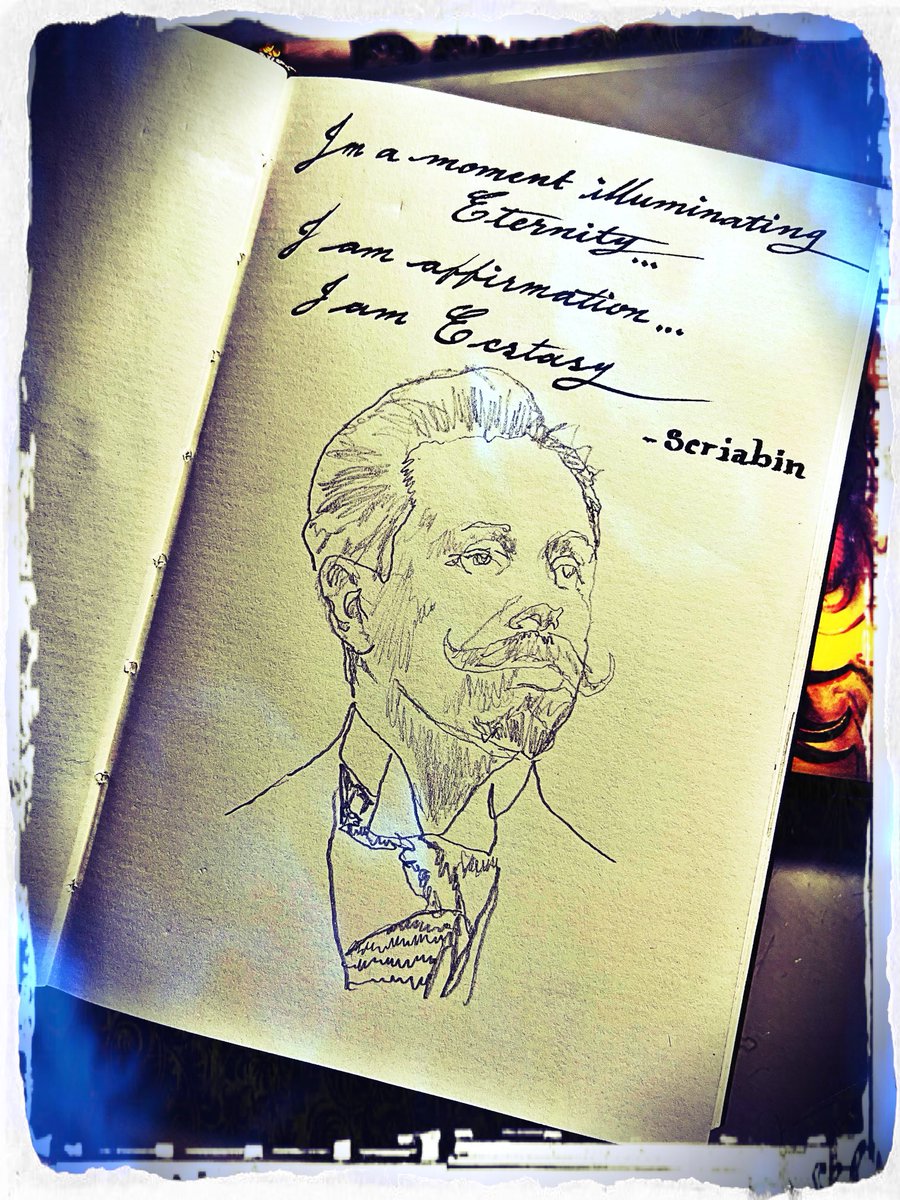 In a moment illuminating
Eternity...
I am affirmation...
I am Ecstasy
~ Scriabin